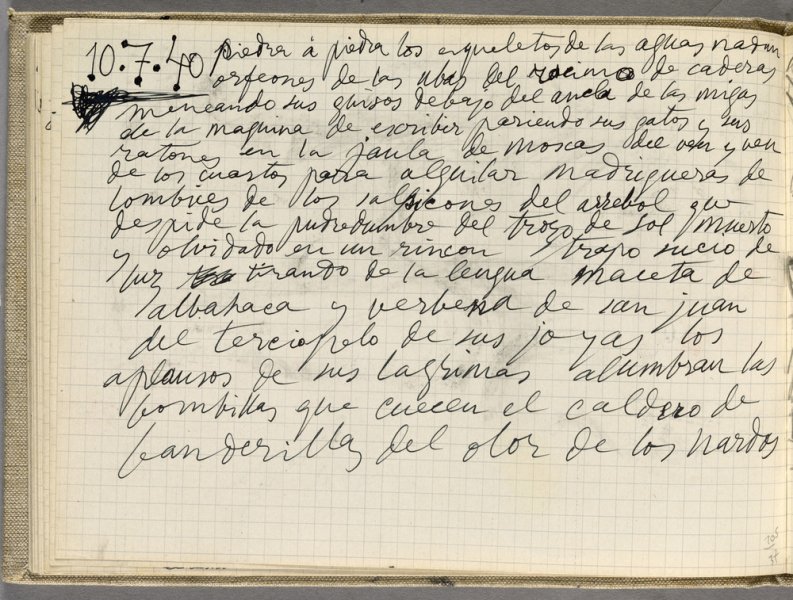 10.7.40 piedra á piedra los esqueletos de las aguas nadan
orfeones de las ubas del racimo de caderas
meneando sus guisos debajo del ancla de las migas
de la maquina de escribir pariendo sus gatos y sus
ratones en la jaula de moscas del ven y ven
de los cuartos para alquilar madrigueras de
lombrices de los salsicones del arrebol que
despide la pudredumbre del trozo de sol muerto
y olvidado en un rincon trapo sucio de
luz tirando de la lengua maceta de
albahaca y verbena de san juan
del terciopelo de sus joyas los
aplausos de sus lagrimas alumbran las
bombillas que cuecen el caldero de
banderillas del olor de los nardos